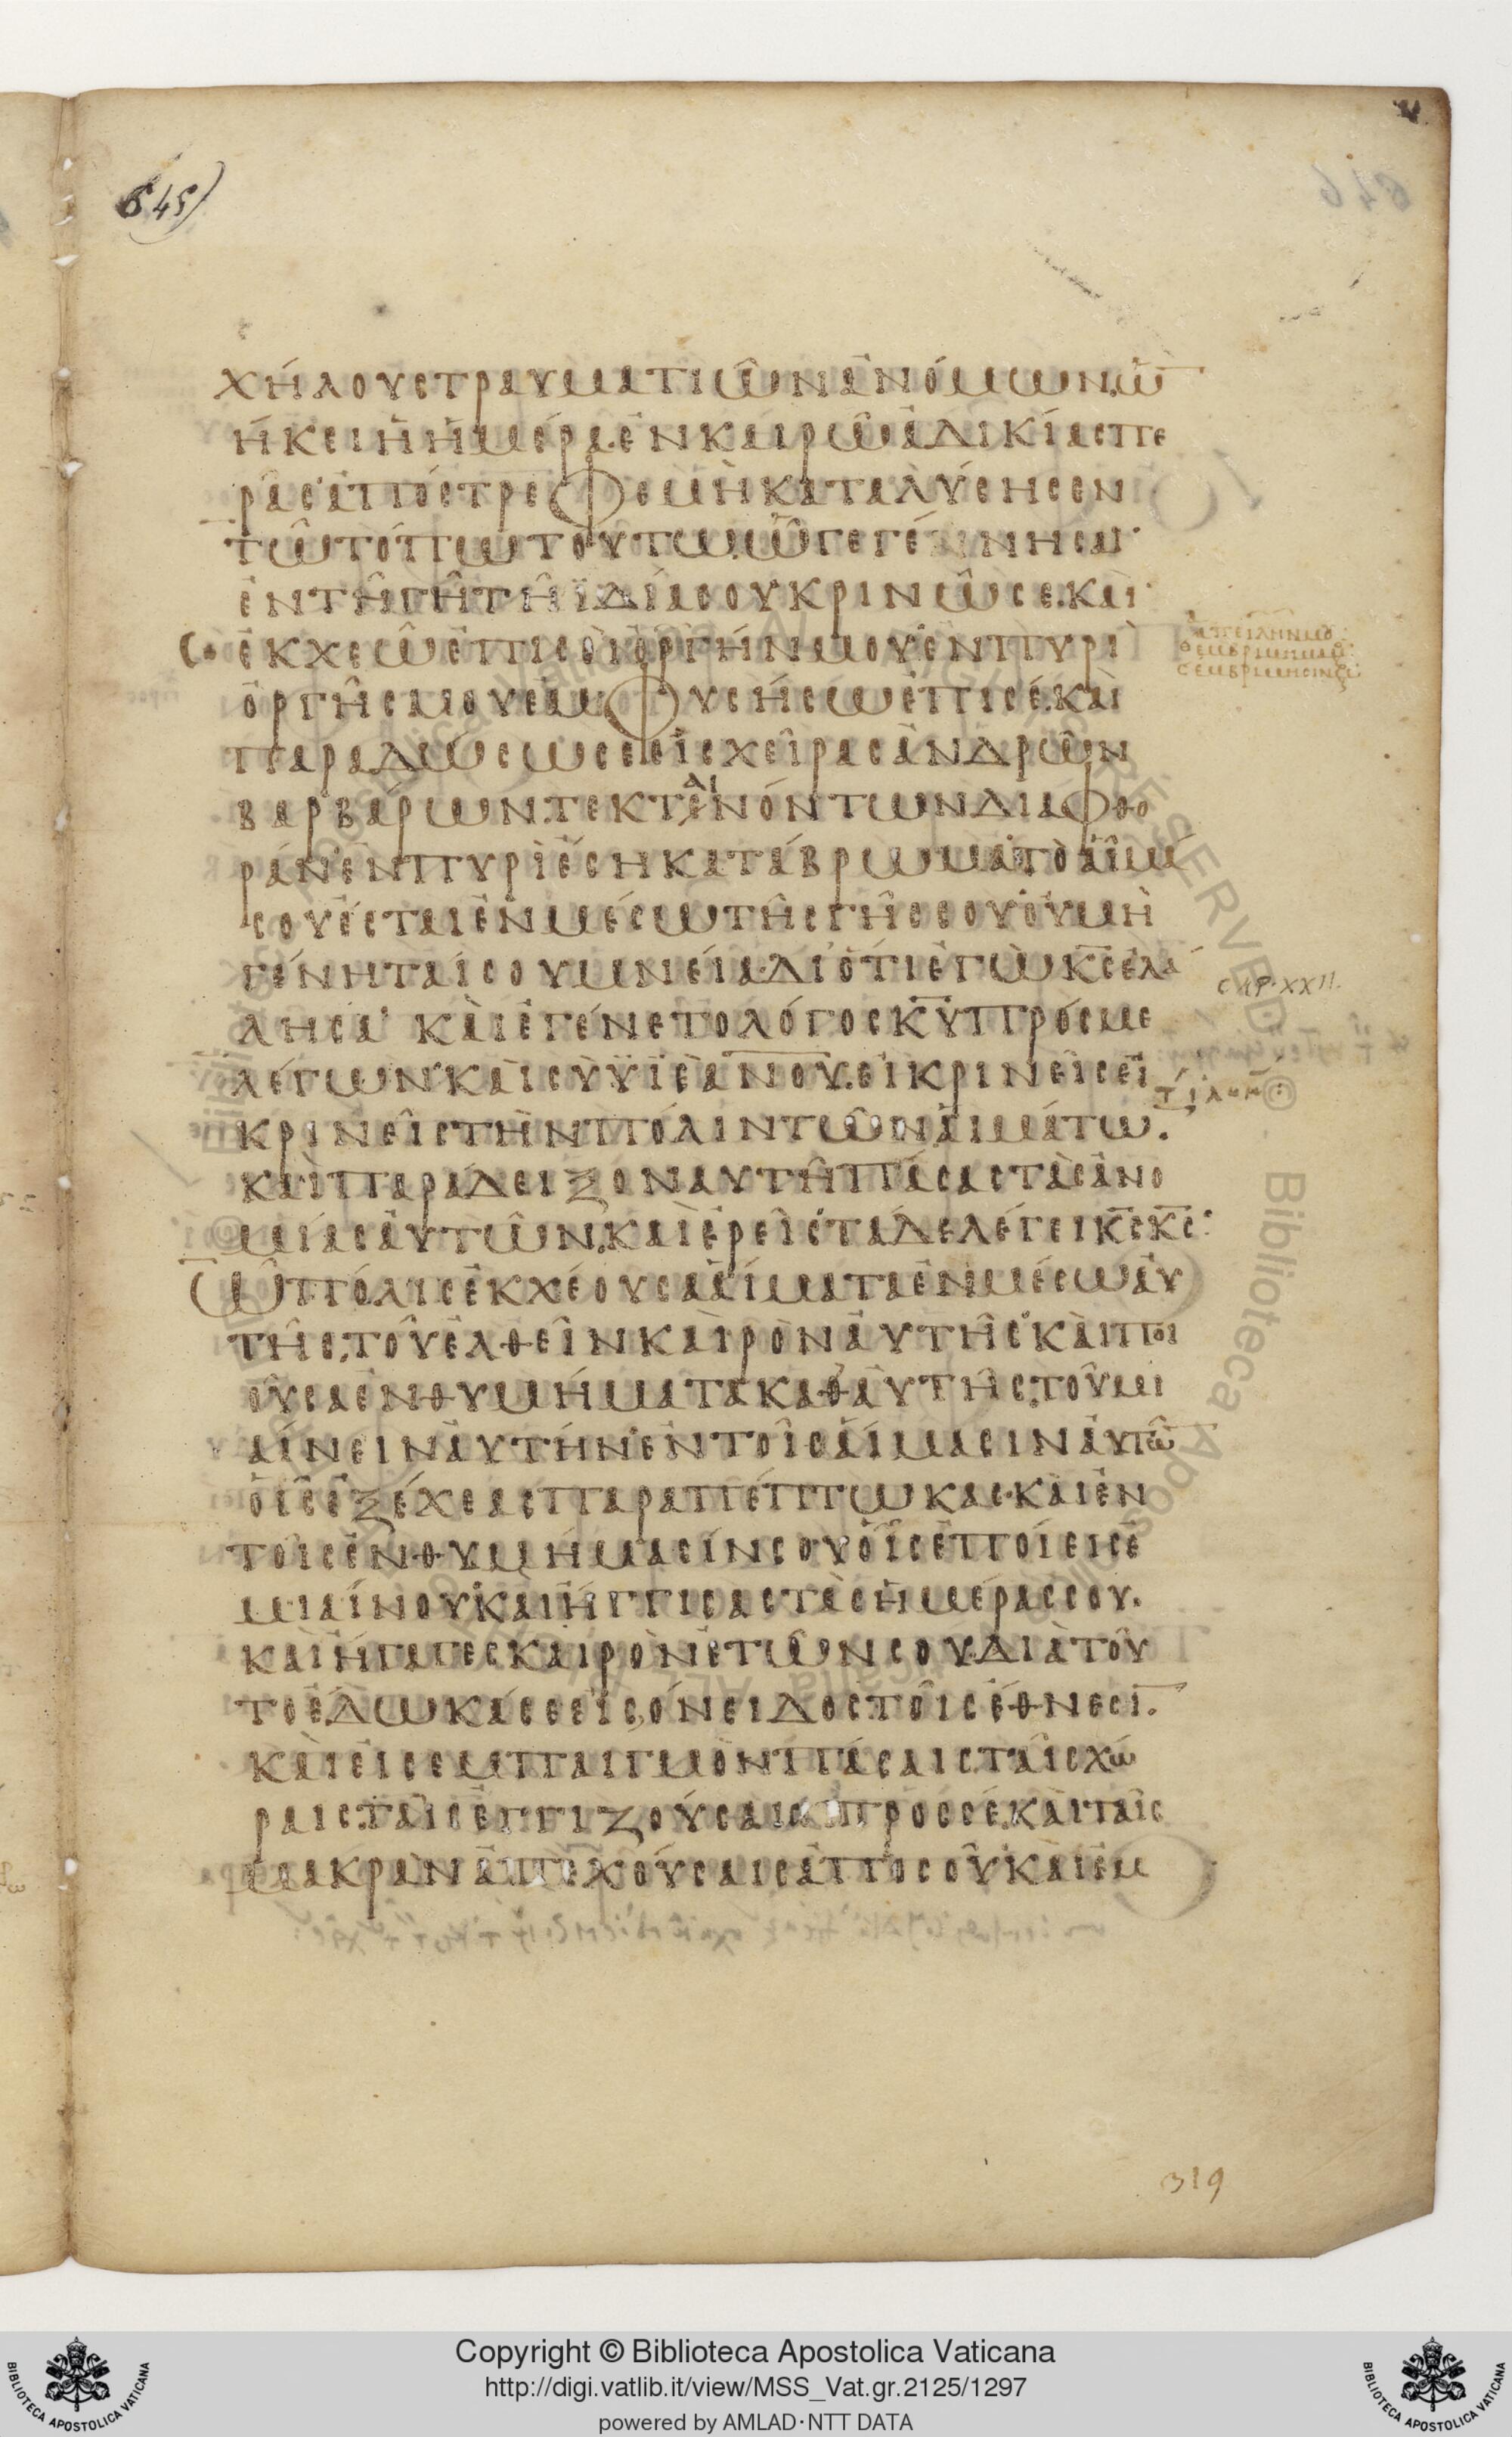 645)
χήλουςτραυματιῶνἀνόμων,ὧ̅
ἥκειἡἡμέρα.ἐνκαιρῶἀδικίαςπε
ρας ἀπόστρεφεμὴκαταλύσησεν
τῶτόπωτούτωὧγεγέννησαι·
ἐντῆγῆτῆϊδίασουκρινῶσε.καὶ
ἐκχεῶἐπισὲὀργήνμουἐνπυρὶ
ὀργῆςμουἐμφυσήσωἐπισέ.καὶ
παραδώσωσεεἰςχεῖραςἀνδρῶν
βαρβάρων.τεκτενόντωνδιαφθο
αι
ράν ἐνπυρὶἔσηκατάβρωμα τὸαἷμά
σουἔσταιἐνμέσωτῆςγῆςσου οὐμὴ
γένηταίσουμνεία·διότιἐγὼκ̅ς̅ἐλά
λησα· καὶἐγένετολόγοςκ̅υ̅πρόςμε
λέγων·καὶσὺϋἱὲἀν̅ο̅υ̅.εἰκρινεῖςεἰ
κρινεῖςτὴνπόλιντῶναἱμάτω̅.
καὶπαράδειξοναυτῆπάσαςτὰςἀνο
μίαςἀυτῶν,καὶἐρεῖςτάδελέγεικ̅ς̅κ̅ς̅·
ὦπόλιςἐκχέουσααἵματαἐνμέσωἀυ
τῆς,τοῦἐλθεῖνκαὶρὸνἀυτῆς·καὶποι
οῦσαἐνθυμήματακαθἀυτῆς,τοῦμι
αίνεινἀυτήν·ἐντοῖςαἵμασινἀυτῶ̅
οἷςἐξέχεαςπαραπέπτωκας·καὶἐν
τοῖςἐνθυμήμασίνσουοἷςἐποίεισἐ
μιαίνου·καὶἤγγισαςτὰςἡμέραςσου.
καὶἤγαγεςκαιρὸνἐτῶνσου.διὰτοῦ
τοἔδωκάσεεἰςόνειδοςτοῖςἔθνεσι̅.
καὶεἰςεμπαιγμὸνπάσαιςταῖςχώ
ραιςταῖςἐγγιζούσαιςπροςσέ.καὶταῖς
μακρὰνἀπεχούσαιςἀπὸσοῦ·καὶἐμ
CAP·XXII.
319
Copyright © Biblioteca Apostolica Vaticana
http://digi.vatlib.it/view/MSS_Vat.gr.2125/1297
powered by AMLAD·NTT DATA
BIBLIOTECA APOSTOLICA VATICANA
BIBLIOTECA APOSTOLICA VATICANA